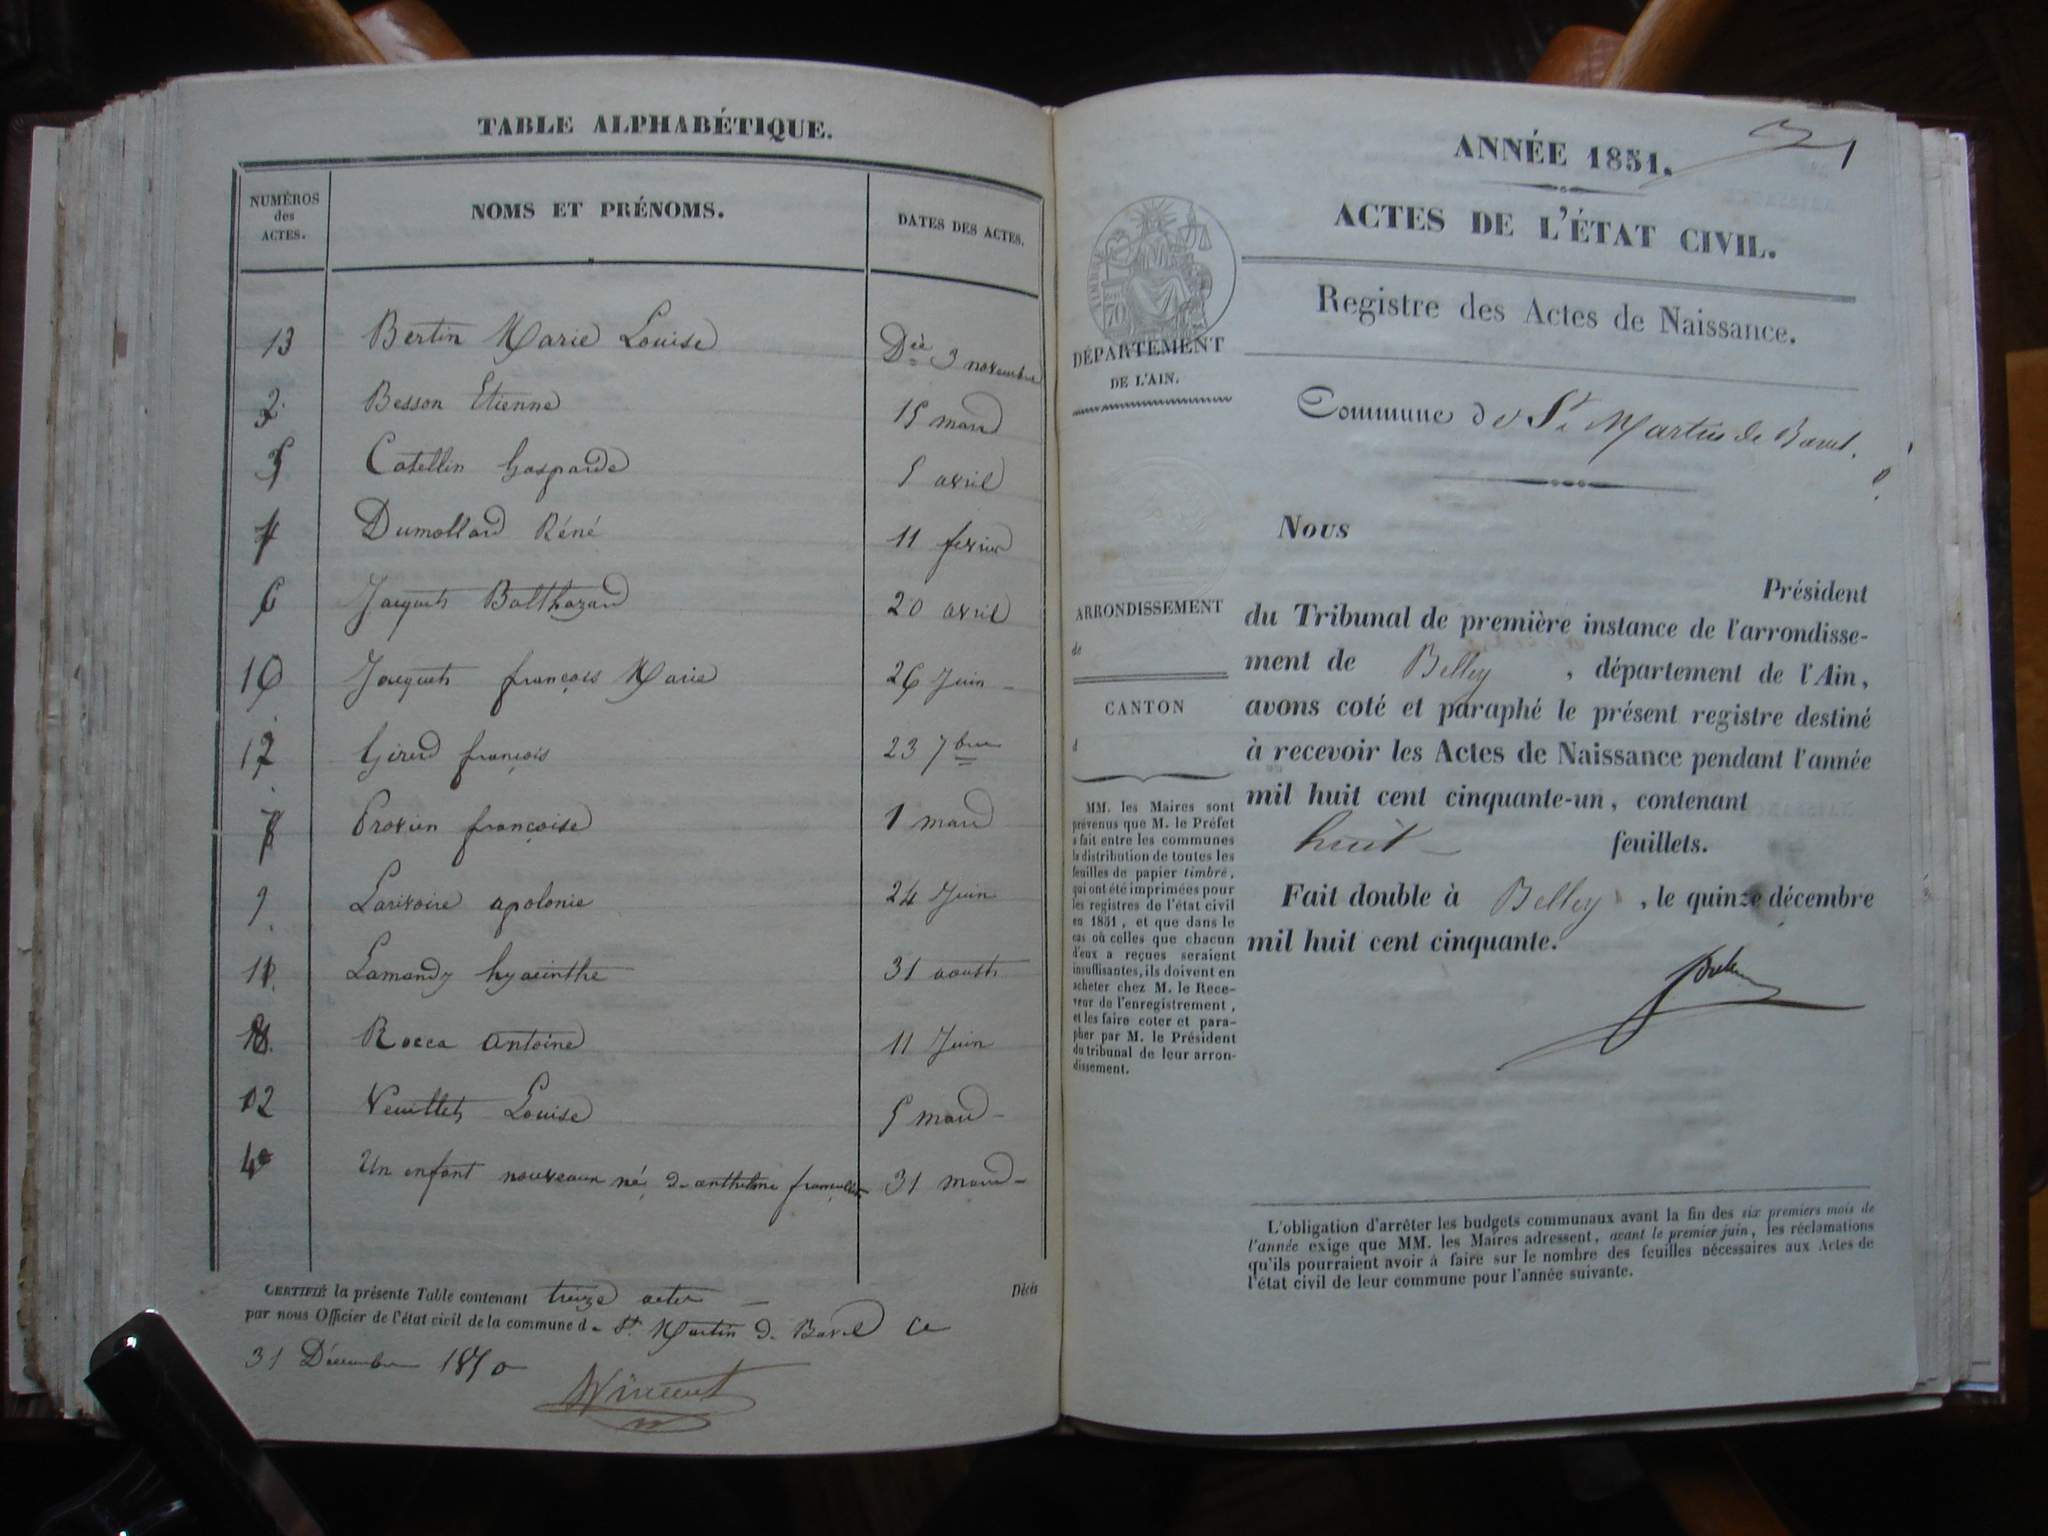 TABLE ALPHABÉTIQUE.
NUMÉROS
des
ACTES.
NOMS ET PRÉNOMS.
DATES DES ACTES.
13 Bertin Marie Louise 3 novembre
Besson Etienne 15 mars
5 Catellin Gasparde 5 avril
Dumollard Réné 11 fevrier
6 Jacquets Balthazard 20 avril
10 Jacquets françois Marie 26 Juin
Girerd françois 23 7bre
françoise 1 mars
9 Larivoire apolonie 24 Juin
11 Lamandy hyacinthe 31 aoust
Rocca antoine 11 Juin
12 Veuillet Louise 5 mars
4 Un enfant nouveaux né d'anthelme 31 mars
CERTIFIÉ la présente Table contenant treize actes Décès
par nous Officier de l'état civil de la commune de St Martin de Bavel ce
31 Décembre 1850
Vincent
ANNÉE 1851.
1
ACTES DE L'ÉTAT CIVIL.
Registre des Actes de Naissance.
TIMBRE
70
DÉPARTEMENT
DE L'AIN.
Commune de St Martin de Bavel.
Nous
Président
du Tribunal de première instance de l'arrondisse-
ment de Belley, département de l'Ain,
avons coté et paraphé le présent registre destiné
à recevoir les Actes de Naissance pendant l'année
mil huit cent cinquante-un, contenant
huit feuillets.
Fait double à Belley, le quinze décembre
mil huit cent cinquante.
ARRONDISSEMENT
de
CANTON
d
MM. les Maires sont
prévenus que M. le Préfet
a fait entre les communes
la distribution de toutes les
feuilles de papier timbré,
qui ont été imprimées pour
les registres de l'état civil
en 1851, et que dans le
cas où celles que chacun
d'eux a reçues seraient
insuffisantes, ils doivent en
acheter chez M. le Rece-
veur de l'enregistrement,
et les faire coter et para-
pher par M. le Président
du tribunal de leur arron-
dissement.
L'obligation d'arrêter les budgets communaux avant la fin des six premiers mois de
l'année exige que MM. les Maires adressent, avant le premier juin, les réclamations
qu'ils pourraient avoir à faire sur le nombre des feuilles nécessaires aux Actes de
l'état civil de leur commune pour l'année suivante.